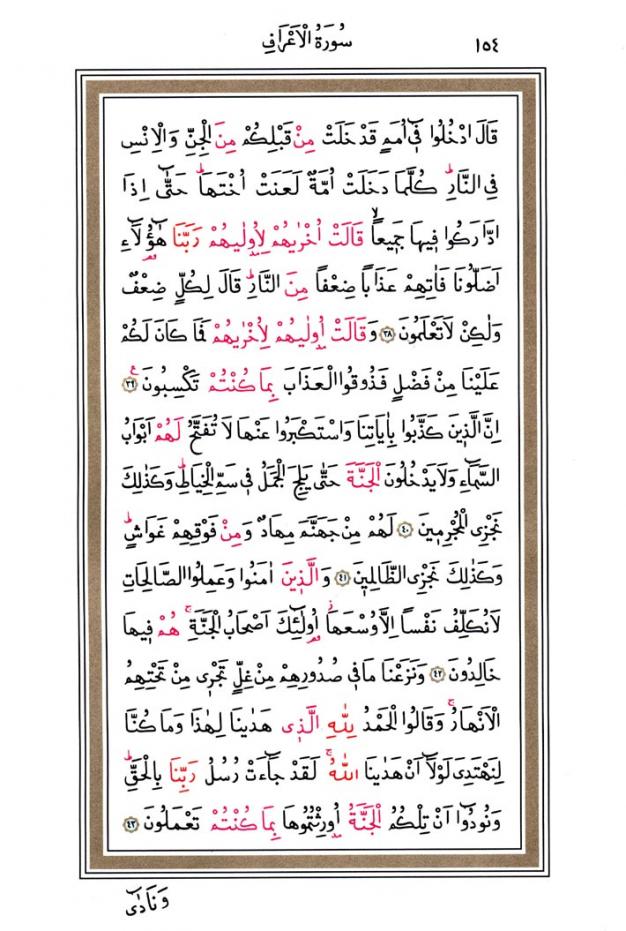 سُورَةُ الْاَعْرَافِ
١٥٤
قَالَ ادْخُلُوا فٓى اُمَمٍ قَدْ خَلَتْ مِنْ قَبْلِكُمْ مِنَ الْجِنِّ وَالْاِنْسِ
فِى النَّارِۜ كُلَّمَا دَخَلَتْ اُمَّةٌ لَعَنَتْ اُخْتَهَاۜ حَتّٰٓى اِذَا
ادَّارَكُوا فٖيهَا جَمٖيعًاۙ قَالَتْ اُخْرٰيهُمْ لِاُو۫لٰيهُمْ رَبَّنَا هٰٓؤُ۬لَٓاءِ
اَضَلُّونَا فَاٰتِهِمْ عَذَابًا ضِعْفًا مِنَ النَّارِۜ قَالَ لِكُلٍّ ضِعْفٌ
وَلٰكِنْ لَا تَعْلَمُونَ ﴿٣٨﴾ وَقَالَتْ اُو۫لٰيهُمْ لِاُخْرٰيهُمْ فَمَا كَانَ لَكُمْ
عَلَيْنَا مِنْ فَضْلٍ فَذُوقُوا الْعَذَابَ بِمَا كُنْتُمْ تَكْسِبُونَ ﴿٣٩﴾ۚ
اِنَّ الَّذٖينَ كَذَّبُوا بِاٰيَاتِنَا وَاسْتَكْبَرُوا عَنْهَا لَا تُفَتَّحُ لَهُمْ اَبْوَابُ
السَّمَٓاءِ وَلَا يَدْخُلُونَ الْجَنَّةَ حَتّٰى يَلِجَ الْجَمَلُ فٖى سَمِّ الْخِيَاطِۜ وَكَذٰلِكَ
نَجْزِى الْمُجْرِمٖينَ ﴿٤٠﴾ لَهُمْ مِنْ جَهَنَّمَ مِهَادٌ وَمِنْ فَوْقِهِمْ غَوَاشٍۜ
وَكَذٰلِكَ نَجْزِى الظَّالِمٖينَ ﴿٤١﴾ وَالَّذٖينَ اٰمَنُوا وَعَمِلُوا الصَّالِحَاتِ
لَا نُكَلِّفُ نَفْسًا اِلَّا وُسْعَهَاۘ اُو۬لٰٓئِكَ اَصْحَابُ الْجَنَّةِۚ هُمْ فٖيهَا
خَالِدُونَ ﴿٤٢﴾ وَنَزَعْنَا مَا فٖى صُدُورِهِمْ مِنْ غِلٍّ تَجْرٖى مِنْ تَحْتِهِمُ
الْاَنْهَارُۚ وَقَالُوا الْحَمْدُ لِلّٰهِ الَّذٖى هَدٰينَا لِهٰذَا وَمَا كُنَّا
لِنَهْتَدِىَ لَوْلَٓا اَنْ هَدٰينَا اللّٰهُۚ لَقَدْ جَٓاءَتْ رُسُلُ رَبِّنَا بِالْحَقِّۜ
وَنُودُٓوا اَنْ تِلْكُمُ الْجَنَّةُ اُو۫رِثْتُمُوهَا بِمَا كُنْتُمْ تَعْمَلُونَ ﴿٤٣﴾
وَنَادٰٓى